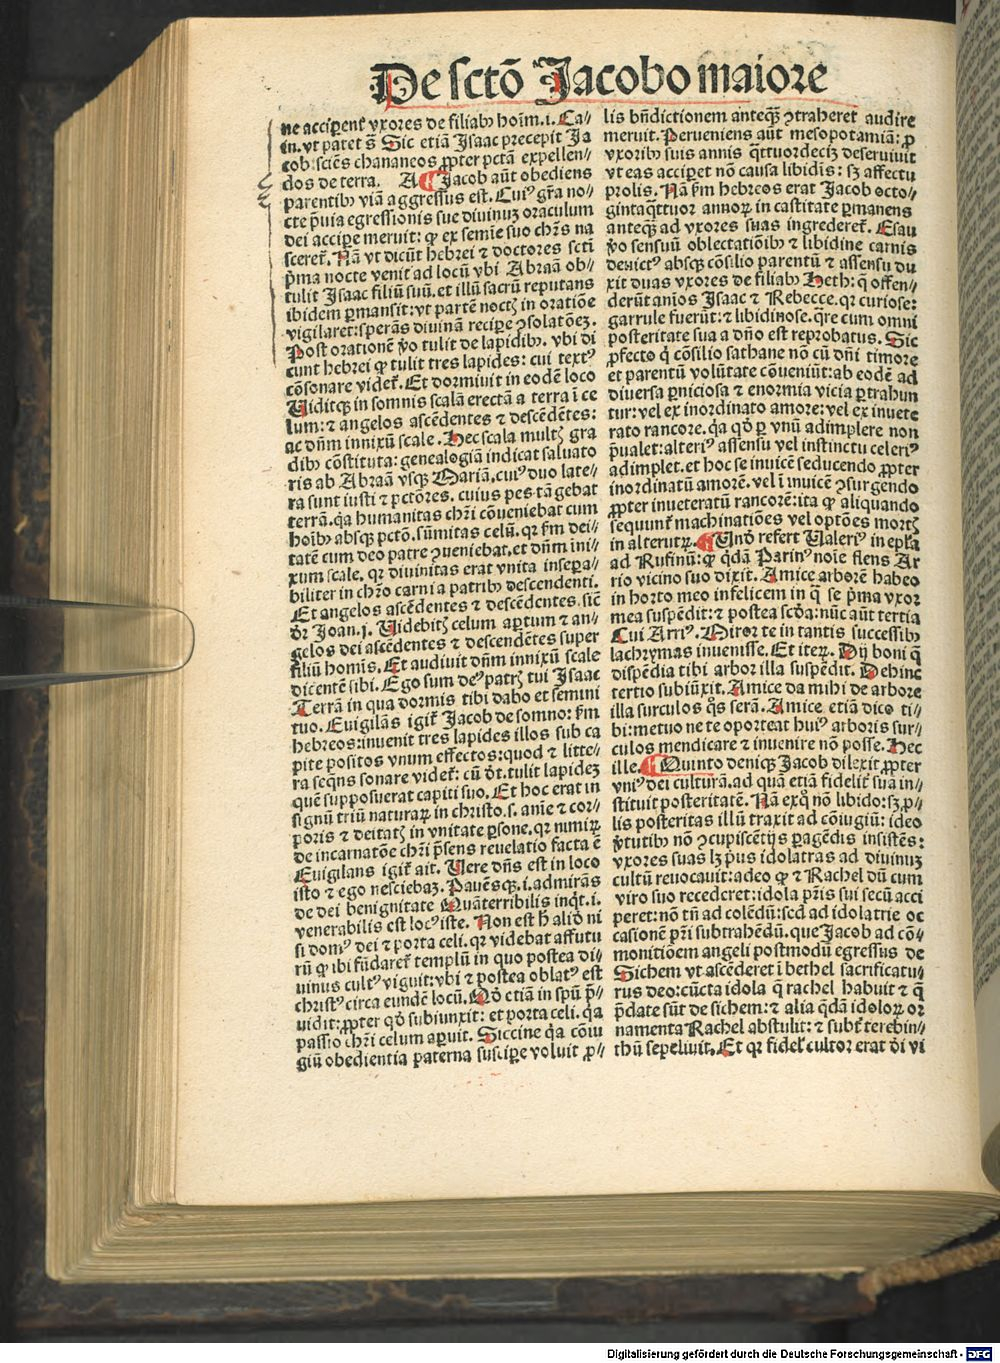 De sctō Jacobo maiore
ne acciperēt vxores de filiab⁹ hoīm.i. Ca⸗
in. vt patet s̄ Sic etiā Isaac precepit Ja
cob: sciēs chananeos ꝓpter pctā expellen⸗
dos de terra. A Jacob aūt obediens
parentib⁹ viā aggressus est. Cui⁹ gr̄a no⸗
cte p̄uia egressionis sue diuinuꝫ oraculum
dei accipe meruit: ꝙ ex semīe suo chr̄s na
sceret̄. Nā vt dicūt hebrei ⁊ doctores scti
p̄ma nocte venit ad locū vbi Abraā ob⸗
tulit Isaac filiū suū. et illū sacrū reputans
ibidem ꝑmansit: vt partē noctꝭ in oratiōe
vigilaret: sperās diuinā recipe ꝯsolatōeꝫ.
Post orationē ṽo tulit de lapidib⁹. vbi di
cunt hebrei ꝙ tulit tres lapides: cui text⁹
cōsonare videt̄. Et dormiuit in eodē loco
Uiditqꝫ in somnis scalā erectā a terra ī ce
lum: ⁊ angelos ascēdentes ⁊ descēdētes:
ac dn̄m innixū scale. Hec scala multꝭ gra
dib⁹ cōstituta: genealogiā indicat saluato
ris ab Abraā vsqꝫ Mariā. cui⁹ duo late⸗
ra sunt iusti ⁊ pctōres. cuius pes tāgebat
terrā. q̄a humanitas chr̄i cōueniebat cum
hoīb⁹ absqꝫ pctō. sūmitas celū. qꝛ ẜm dei⸗
tatē cum deo patre ꝯueniebat. et dn̄m ini⸗
xum scale. qꝛ diuinitas erat vnita insepa⸗
biliter in chr̄o carni a patrib⁹ descendenti.
Et angelos ascēdentes ⁊ descēdentes. sic̄
dr̄ Joan.j. Uidebitꝭ celum aꝑtum ⁊ an⸗
gelos dei ascēdentes ⁊ descendētes super
filiū homis. Et audiuit dn̄m innixū scale
dicentē sibi. Ego sum de⁹ patrꝭ tui Isaac
Terrā in qua dormis tibi dabo et semini
tuo. Euigilās igit̄ Jacob de somno: ẜm
hebreos: inuenit tres lapides illos sub ca
pite positos vnum effectos: quod ⁊ litte⸗
ra seq̄ns sonare videt̄: cū dt̄. tulit lapideꝫ
quē supposuerat capiti suo. Et hoc erat in
signū triū naturaꝝ in christo. s. aīe ⁊ cor⸗
poris ⁊ deitatꝭ in vnitate ꝑsone. qꝛ nimiꝝ
de incarnatōe chr̄i p̄sens reuelatio facta ē
Euigilans igit̄ ait. Uere dn̄s est in loco
isto ⁊ ego nesciebaꝫ. Pauēsqꝫ .i. admirās
de dei benignitate Quā terribilis inqt̄. i.
venerabilis est loc⁹ iste. Non est h̄ aliđ ni
si dom⁹ dei ⁊ porta celi. qꝛ videbat affutu
rū ꝙ ibi fūdaret̄ templū in quo postea di⸗
uinus cult⁹ viguit: vbi ⁊ postea oblat⁹ est
christ⁹ circa eundē locū. Qđ etiā in spū p̄⸗
uidit: ꝓpter qđ subiunxit: et porta celi. q̄a
passio chr̄i celum aꝑuit. Siccine q̄a cōiu
giū obedientia paterna suscipe voluit ꝓ⸗
lis bn̄dictionem anteqꝫ ꝯtraheret audire
meruit. Perueniens aūt mesopotamiā: ꝓ
vxorib⁹ suis annis q̄ttuordeciꝫ deseruiuit
vt eas acciꝑet nō causa libidis: sꝫ affectu
prolis. Nā ẜm hebreos erat Jacob octo⸗
gintaq̄ttuor annoꝝ in castitate ꝑmanens
anteqꝫ ad vxores suas ingrederet̄. Esau
ṽo sensuū oblectatiōib⁹ ⁊ libidine carnis
deuict⁹ absqꝫ cōsilio parentū ⁊ assensu du
xit duas vxores de filiab⁹ Heth: q̄ offen⸗
derūt anīos Isaac ⁊ Rebecce. qꝛ curiose:
garrule fuerūt: ⁊ libidinose. q̄re cum omni
posteritate sua a dn̄o est reprobatus. Sic
ꝓfecto q̇ cōsilio sathane nō cū dn̄i timore
et parentū volūtate cōueniūt: ab eodē ad
diuersa ꝑniciosa ⁊ enormia vicia ꝑtrahun
tur: vel ex inordinato amore: vel ex inuete
rato rancore. q̄a qđ ꝑ vnū adimplere non
p̄ualet: alteri⁹ assensu vel instinctu celeri⁹
adimplet. et hoc se inuicē seducendo ꝓpter
inordinatū amorē. vel ī inuicē ꝯsurgendo
ꝓpter inueteratū rancorē: ita ꝙ aliquando
sequunt̄ machinatiōes vel optōes mortꝭ
in alterutꝝ. Unđ refert Ualeri⁹ in epl̄a
ad Rufinū: ꝙ qđā Parin⁹ noīe flens Ar
rio vicino suo dixit. Amice arborē habeo
in horto meo infelicem in q̄ se p̄ma vxor
mea suspēdit: ⁊ postea scđa: nūc aūt tertia
Cui Arri⁹. Miror te in tantis successib⁹
lachrymas inuenisse. Et iteꝝ. Dij boni q̄
dispēdia tibi arbor illa suspēdit. Dehinc
tertio subiūxit. Amice da mihi de arbore
illa surculos q̊s serā. Amice etiā dico ti⸗
bi: metuo ne te oporteat hui⁹ arboris sur⸗
culos mendicare ⁊ inuenire nō posse. Hec
ille. Quinto deniqꝫ Jacob dilexit ꝓpter
vni⁹ dei culturā. ad quā etiā fidelit̄ sua in⸗
stituit posteritatē. Nā exq̊ nō libido: sꝫ ꝓ⸗
lis posteritas illū traxit ad cōiugiū: ideo
ṽtutib⁹ nō ꝯcupiscētijs ꝑagēdis insistēs:
vxores suas lꝫ p̄us idolatras ad diuinuꝫ
cultū reuocauit: adeo ꝙ ⁊ Rachel dū cum
viro suo recederet: idola pr̄is sui secū acci
peret: nō tn̄ ad colēdū: sed ad idolatrie oc
casionē pr̄i subtrahēdū. que Jacob ad cō⸗
monitiōem angeli postmodū egressus de
Sichem vt ascēderet ī bethel sacrificatu⸗
rus deo: cūcta idola q̄ rachel habuit ⁊ q̄
p̄date sūt de sichem: ⁊ alia qđā idoloꝝ or
namenta Rachel abstulit: ⁊ subt̄ terebin⸗
thū sepeliuit. Et qꝛ fidel̄ cultor erat đi vi
Digitalisierung gefördert durch die Deutsche Forschungsgemeinschaft - DFG